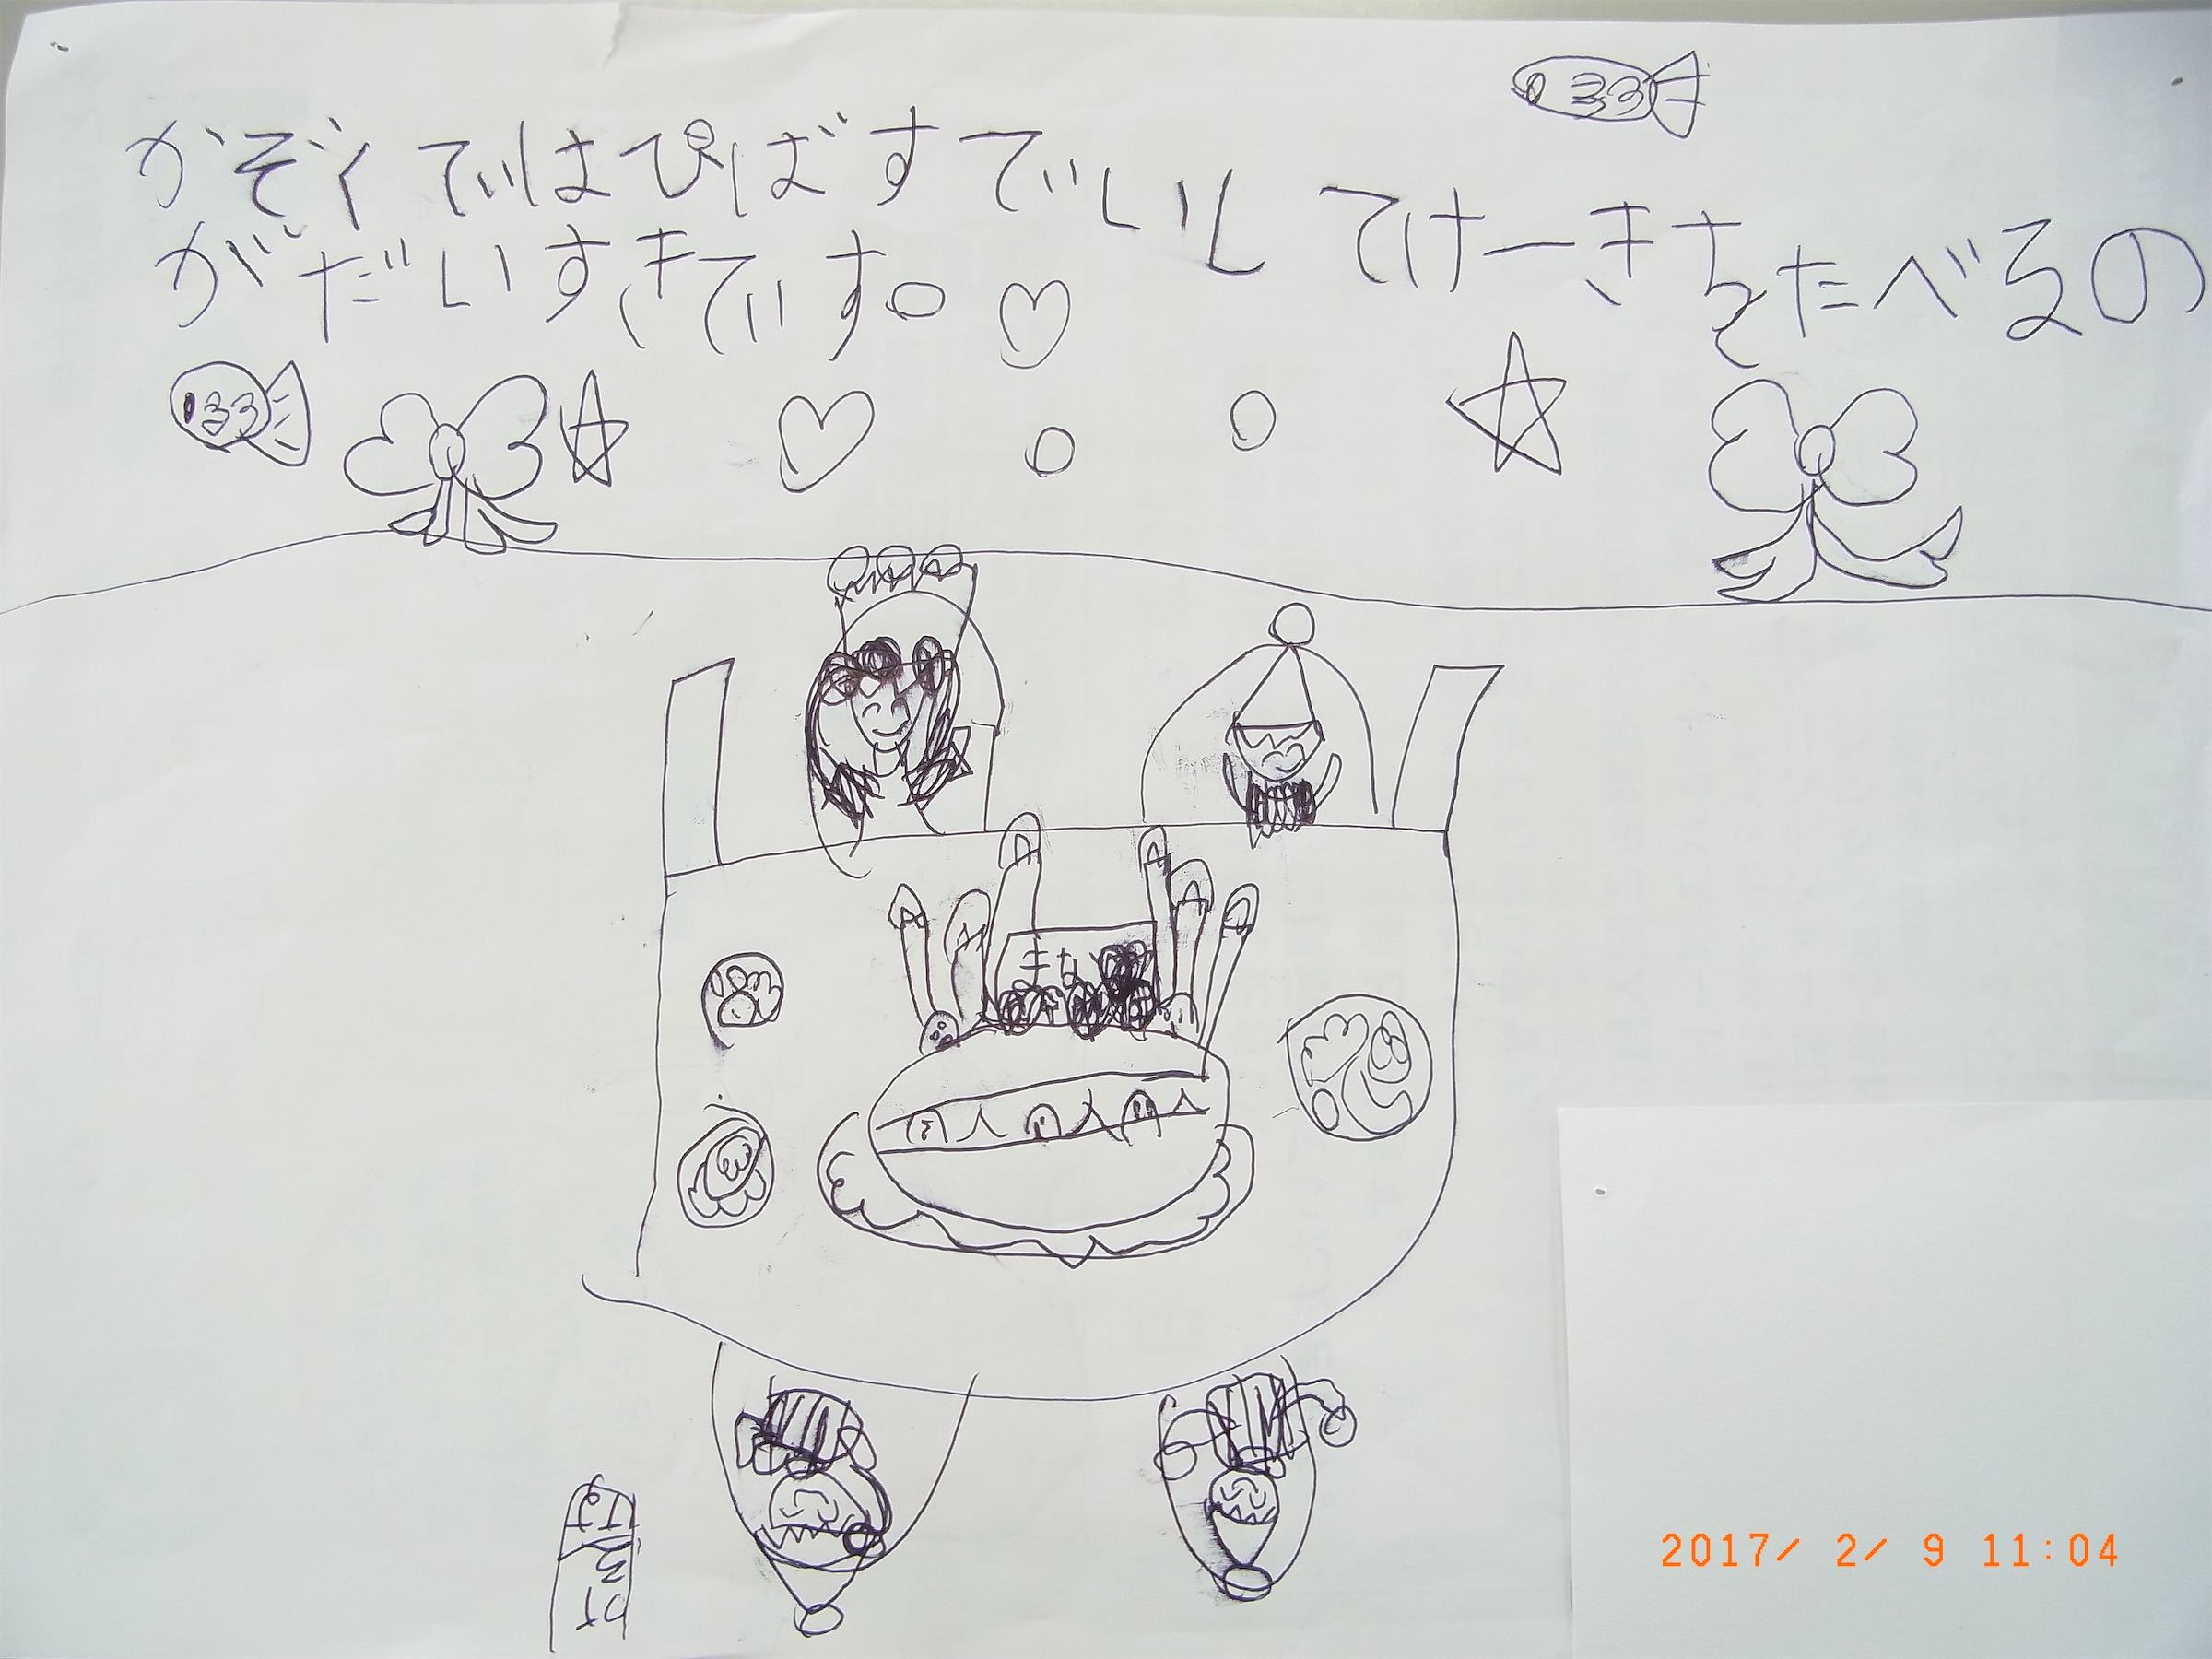 かぞくではぴばすでいしてけーきをたべるの
がだいすきです。
きな
2017/ 2/ 9 11:04